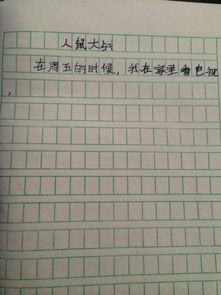 人鼠大战
在周五的时候，我在家里看电视
，